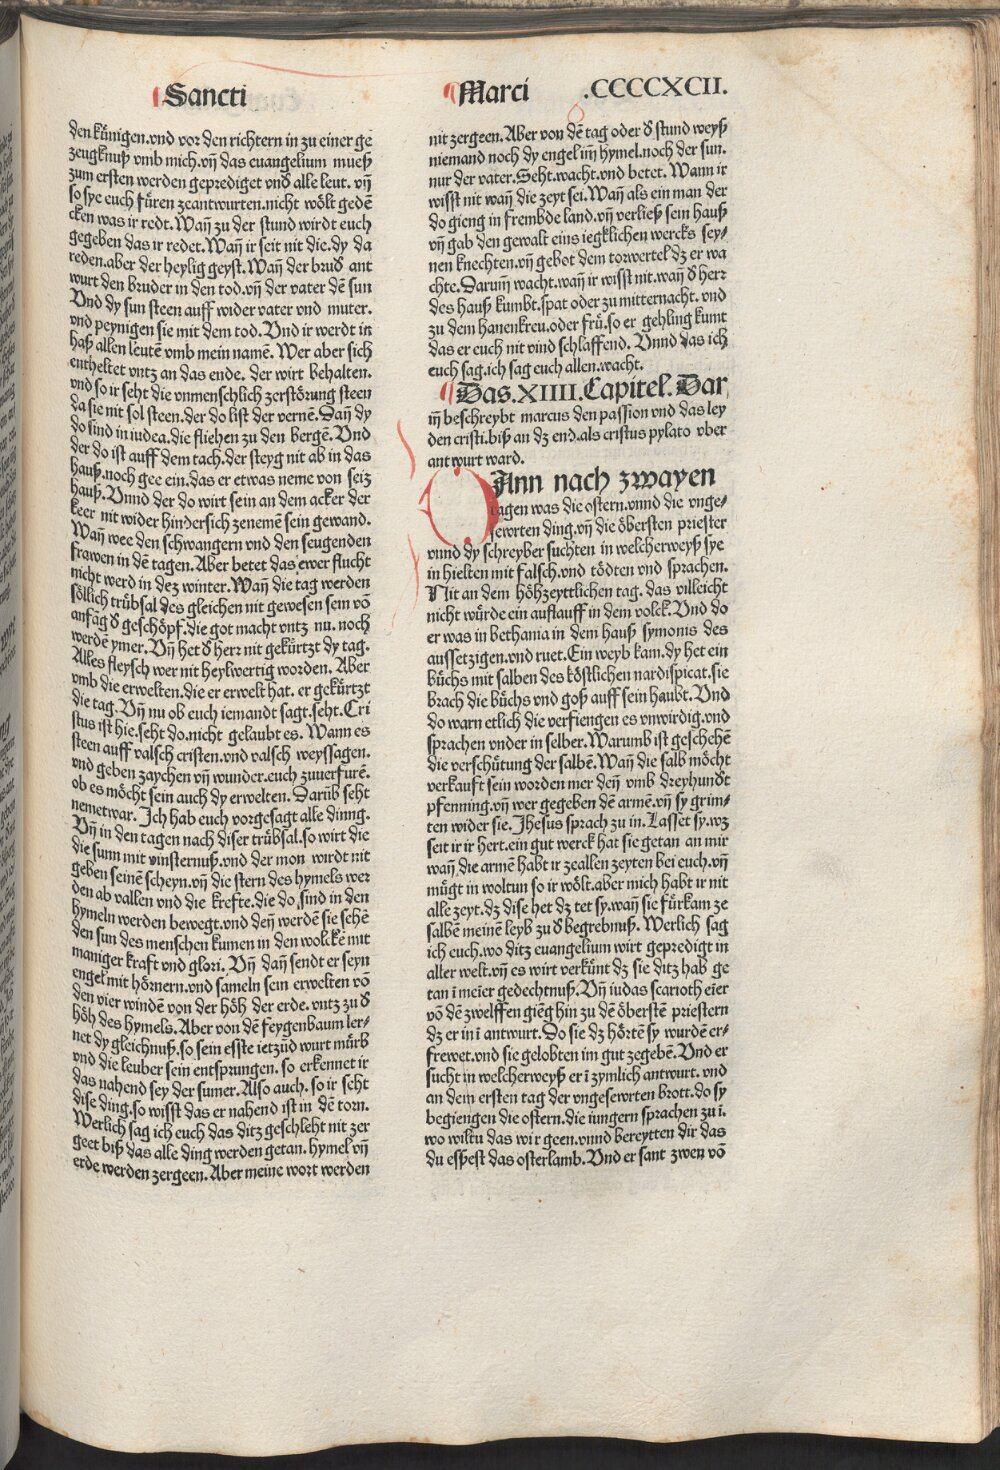 Sancti
Marci .CCCCXCII.
den künigen.vnd vor den richtern in zu einer ge
zeugknuß vmb mich.vň das euangelium mueß
zum ersten werden geprediget vnď alle leut. vň
so sye euch füren zeantwurten.nicht wölt gedē
cken was ir redt. Waň zu der stund wirdt euch
gegeben das ir redet. Waň ir seit nit die.dy da
reden.aber der heylig geyst. Waň der bruď ant
wurt den bruder in den tod.vň der vater dē sun
Vnd dy sun steen auff wider vater vnd muter.
vnd peynigen sie mit dem tod. Vnd ir werdt in
haß allen leutē vmb mein namē. Wer aber sich
entheltet vntz an das ende. der wirt behalten.
vnd so ir seht die vnmenschlich zerstörung steen
da sie nit sol steen.der do list der vernē. Daň dy
do sind in iudea.die fliehen zu den bergē. Vnd
der do ist auff dem tach.der steyg nit ab in das
hauß.noch gee ein.das er etwas neme von seiz
hauß. Vnnd der do wirt sein an dem acker der
keer nit wider hindersich zenemē sein gewand.
Waň wee den schwangern vnd den seugenden
frawen in dē tagen. Aber betet das ewer flucht
nicht werd in dez winter. Waň die tag werden
söllich trübsal des gleichen nit gewesen sein vō
anfāg ď geschöpf.die got macht vntz nu. noch
werdē ymer. Vň het ď herr nit gekürtzt dy tag.
Alles fleysch wer nit heylwertig worden. Aber
vmb die erwelten.die er erwelt hat. er gekürtzt
die tag. Vň nu ob euch iemandt sagt.seht. Cri
stus ist hie.seht do.nicht gelaubt es. Wann es
steen auff valsch cristen.vnd valsch weyssagen.
vnd geben zaychen vň wunder.euch zuuerfurē.
ob es möcht sein auch dy erwelten. Darūb seht
nemetwar. Ich hab euch vorgesagt alle dinng.
Vň in den tagen nach diser trübsal.so wirt die
die sunn mit vinsternuß.vnd der mon wirdt nit
geben seinē scheyn.vň die stern des hymels wer
den ab vallen vnd die krefte.die do sind in den
hymeln werden bewegt.vnd deň werdē sie sehē
den sun des menschen kumen in den wolckē mit
maniger kraft vnd glori. Vň daň sendt er seyn
engel mit hörnern.vnd sameln sein erwelten vō
den vier windē von der höh der erde. vntz zu ď
höh des hymels. Aber von dē feygenbaum ler/
net dy gleichnuß.so sein esste ietzūd wurt mürb
vnd die leuber sein entsprungen. so erkennet ir
das nahend sey der sumer. Also auch. so ir seht
dise ding.so wisst das er nahend ist in dē torn.
Werlich sag ich euch das ditz geschleht nit zer
geet biß das alle ding werden getan. hymel vň
erde werden zergeen. Aber meine wort werden
nit zergeen. Aber von dē tag oder ď stund weyß
niemand noch dy engel iň hymel.noch der sun.
nur der vater. Seht.wacht.vnd betet. Wann ir
wisst nit waň die zeyt sei. Waň als ein man der
do gieng in frembde land.vň verließ sein hauß
vň gab den gewalt eins iegklichen wercks sey/
nen knechten.vň gebot dem torwertel dz er wa
chte. Daruň wacht.waň ir wisst nit.waň ď herr
des hauß kumbt.spat oder zu mitternacht. vnd
zu dem hanenkreu.oder frü.so er gehling kumt
das er euch nit vind schlaffend. Vnnd das ich
euch sag.ich sag euch allen.wacht.
Das.XIIII.Capitel.Dar
iň beschreybt marcus den passion vnd das ley
den cristi.biß an dz end.als cristus pylato vber
antwurt ward.
Ann nach zwayen
tagen was die ostern.vnnd die vnge-
sewrten ding.vň die öbersten priester
vnnd dy schreyber suchten in welcherweyß sye
in hielten mit falsch.vnd tödten vnd sprachen.
Nit an dem höhzeyttlichen tag. das villeicht
nicht würde ein auflauff in dem volck. Vnd do
er was in bethania in dem hauß symonis des
aussetzigen.vnd ruet. Ein weyb kam.dy het ein
büchs mit salben des köstlichen nardispicat.sie
brach die büchs vnd goß auff sein haubt. Vnd
do warn etlich die verfiengen es vnwirdig.vnd
sprachen vnder in selber. Warumb ist geschehē
die verschütung der salbē. Waň die salb möcht
verkauft sein worden mer deň vmb dreyhundt
pfenning.vň wer gegeben dē armē.vň sy grim/
ten wider sie. Jhesus sprach zu in. Lasset sy.wz
seit ir ir hert.ein gut werck hat sie getan an mir
waň die armē habt ir zeallen zeyten bei euch.vň
mügt in woltun so ir wölt.aber mich habt ir nit
alle zeyt.dz dise het dz tet sy.waň sie fürkam ze
salbē meinē leyb zu ď begrebnuß. Werlich sag
ich euch.wo ditz euangelium wirt gepredigt in
aller welt.vň es wirt verkünt dz sie ditz hab ge
tan ī meīer gedechtnuß. Vň iudas scarioth eīer
vō dē zwelffen giēg hin zu dē öberstē priestern
dz er in ī antwurt. Do sie dz hörtē sy wurdē er/
frewet.vnd sie gelobten im gut zegebē. Vnd er
sucht in welcherweyß er ī zymlich antwurt. vnd
an dem ersten tag der vngesewrten brott.do sy
begiengen die ostern.die iungern sprachen zu ī.
wo wiltu das wir geen.vnnd bereytten dir das
du essest das osterlamb. Vnd er sant zwen vō